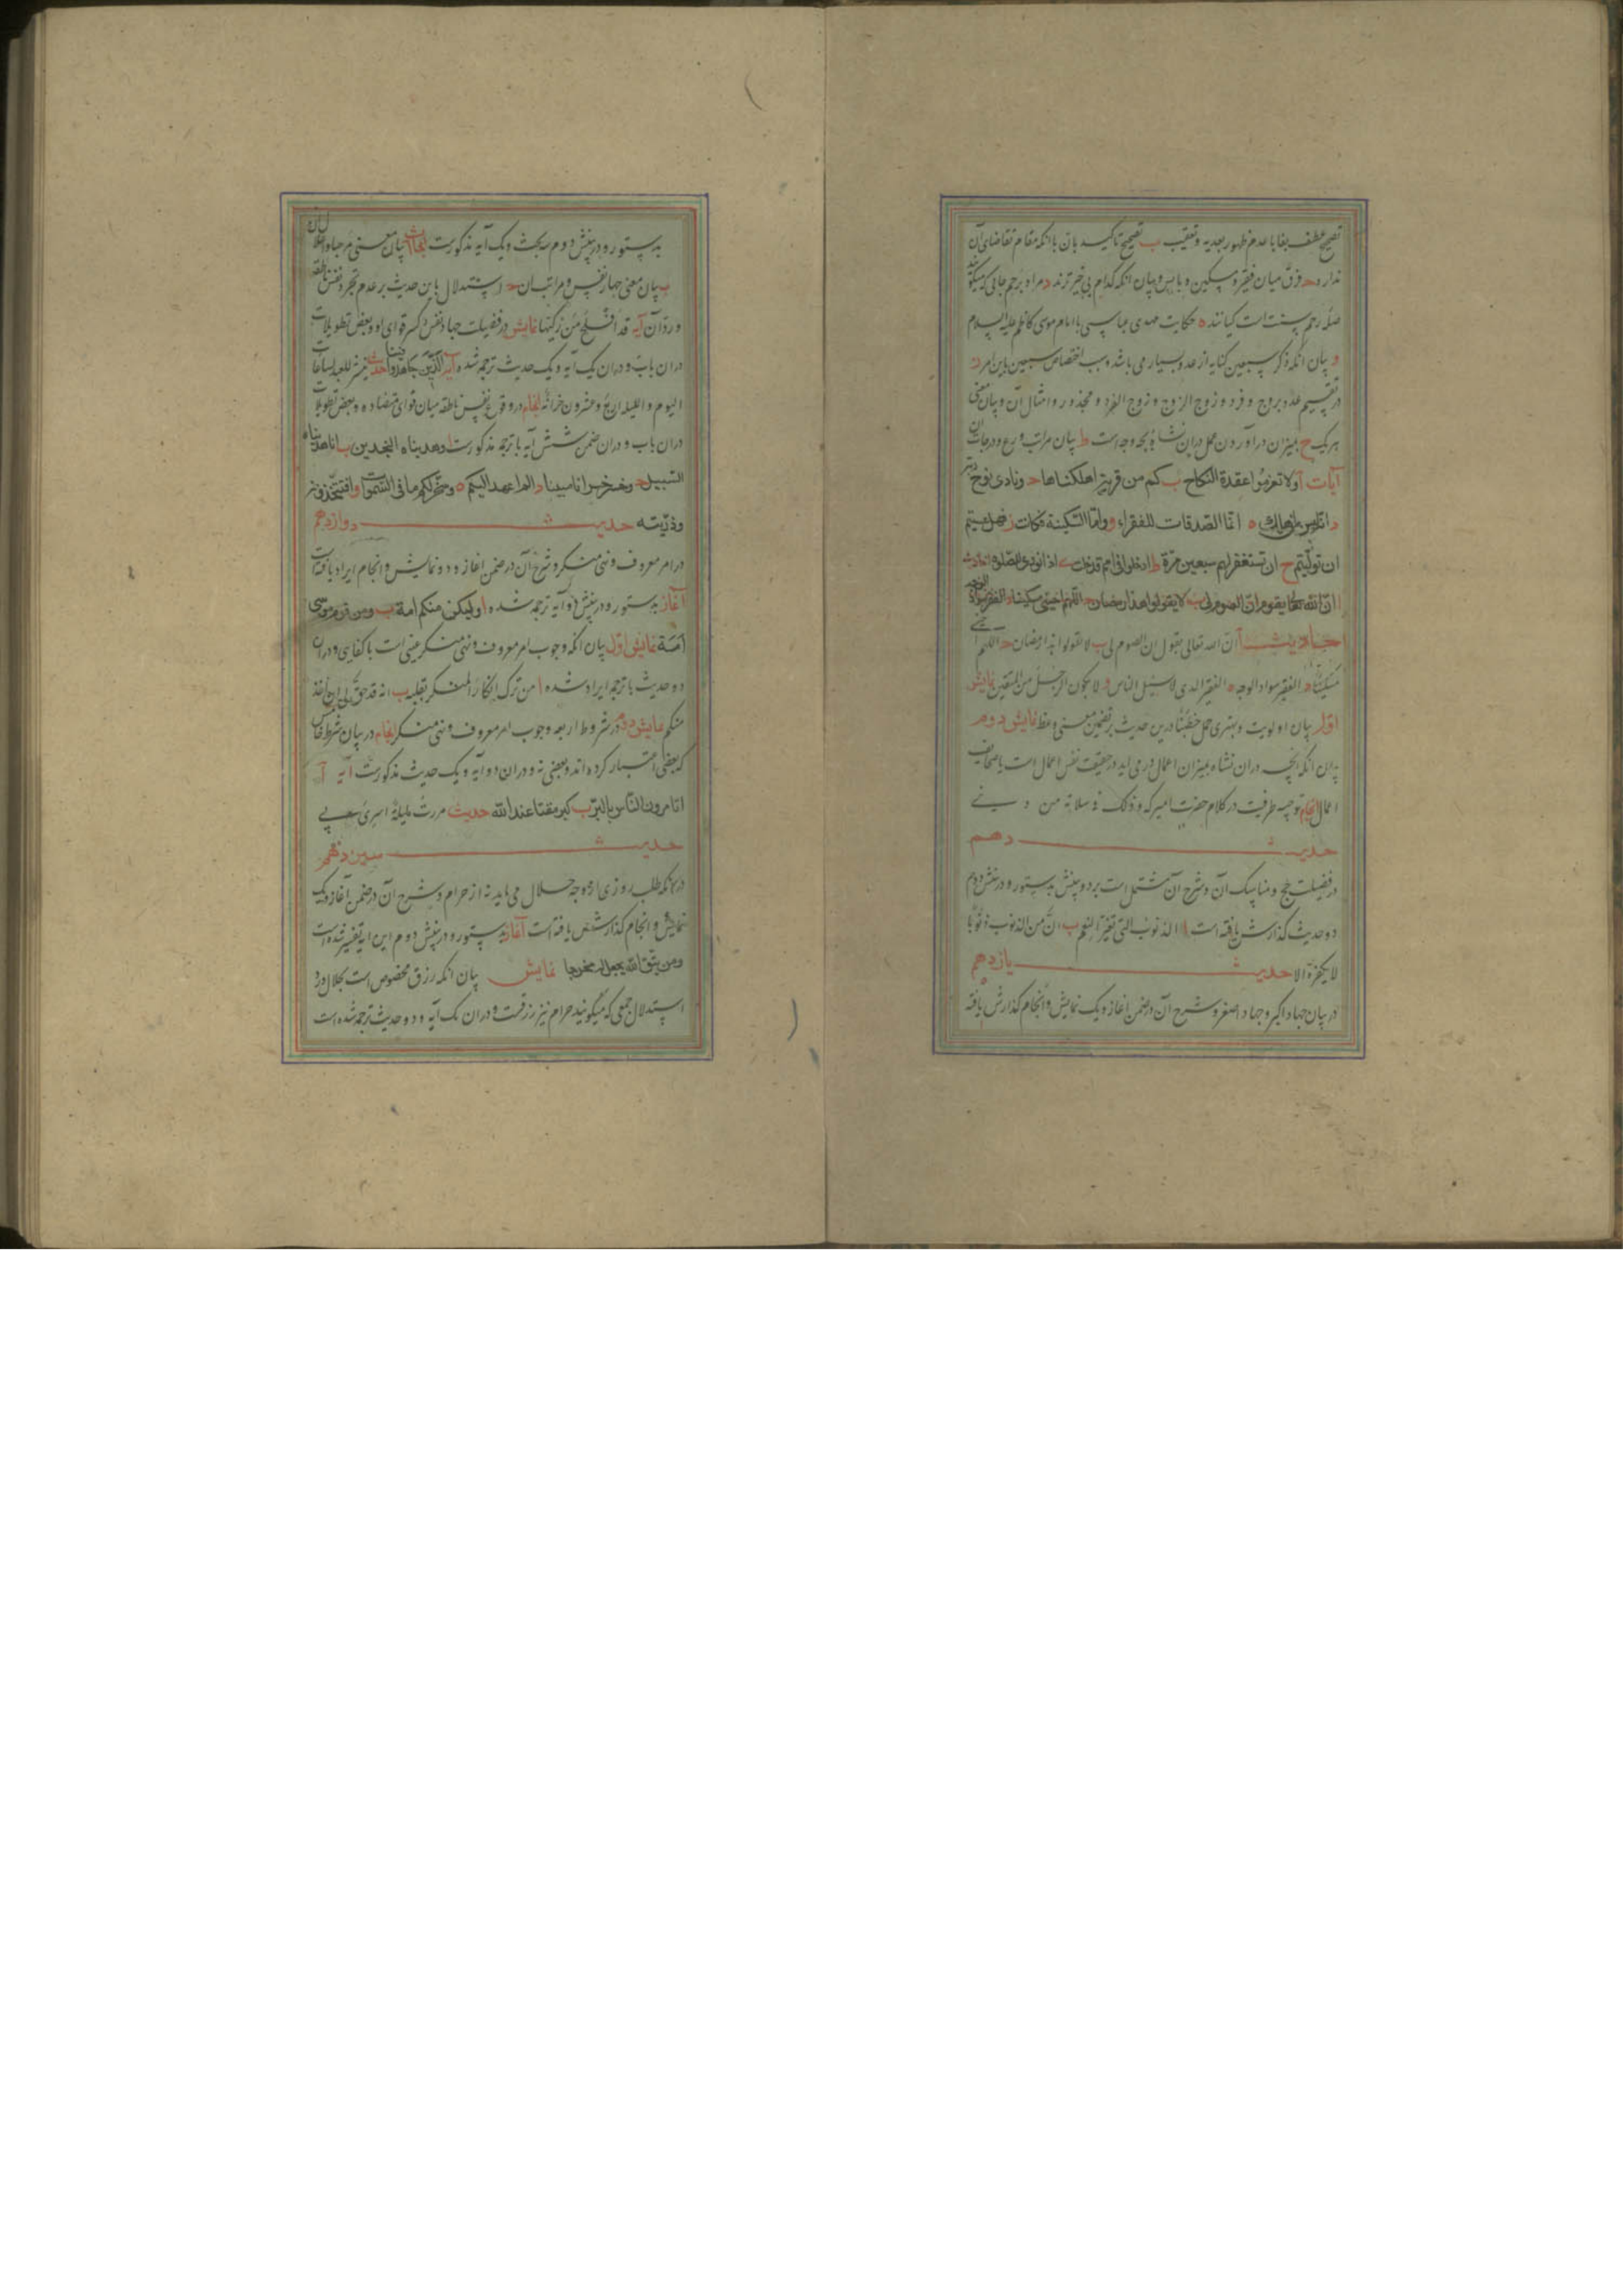 تصحیح عطف بفا با عدم ظهور بعدیه و تعقیب ب تصحیح تاکید بان با انکه مقام تقاضای آن
ندارد ح فرق میان فقیر و مسکین و بایس و بیان انکه کدام بی چیز ترند د مراد برحم جائی که میگویند
صله رحم سنت است کیانند ه حکایت مهدی عباسی با امام موسی کاظم علیه السلام
و بیان انکه ذکر سبعین کنایه از عدد بسیار می باشد و سبب اختصاص سبعین باین امر ز
در تقسیم عدد بزوج و فرد و زوج الزوج و زوج الفرد و مجذور و امثال آن و بیان معنی
هر یک ح بمیزان در آوردن عمل در ان نشاه بچه وجه است ط بیان مراتب ورع و درجات ان
آیات آ ولا تعزموا عقدة النکاح ب کم من قریة اهلکناها ح ونادی نوح ربه
د اتامرک ه انما الصدقات للفقراء و واما السکینة فکانت ز فهل عسیتم
ان تولیتم ح ان تستغفر لهم سبعین مرة ط ادخلوا فی امم قد خلت ی اذا نودی للصلوة
ان الله تعالی یقول ان الصوم لی ب لا یقولوا هذا رمضان ح اللهم احینی مسکینا د الفقر سواد الوجه
احادیث آ ان الله تعالی یقول ان الصوم لی ب لا تقولوا هذا رمضان ح اللهم
مسکینا د الفقر سواد الوجه ه الفقیر الذی لا یسئل الناس و لا یکون الرجل من المتقین نمایش
اول بیان اولویت و بهتری حمل خطبنا درین حدیث بر تضمین معنی وعظ نمایش دوم
بیان انکه انچه در ان نشاه بمیزان اعمال در می اید در حقیقت نفس اعمال است یا صحایف
اعمال انجام توجیه ظرفیت در کلام حضرت امیر که وذلک فی سلابة من دینی
حدیث دهم
در فضیلت حج و مناسک آن و شرح ان مشتمل است بر دو بینش بدستور و در بینش دوم
دو حدیث گذارش یافته است ا الذنوب التی تغیر النعم ب ان من الذنوب ذنوبا
لا یکفره الا حدیث یازدهم
در بیان جهاد اکبر و جهاد اصغر و شرح آن در ضمن اغاز و یک نمایش و انجام گذارش یافته
بدستور و در بینش دوم سه بحث و یک آیه مذکورست ابحاث ا بیان معنی مرحبا و اهلا
ب بیان معنی جهاد نفس و مراتب ان ح استدلال باین حدیث بر عدم تجرد نفس ناطقه
و رد آن آیه قد افلح من زکیها نمایش در فضیلت جهاد نفس و کسر قوای او و بعض تطویلات
در ان باب و در ان یک آیه و یک حدیث ترجمه شده آیه الذین جاهدوا فینا حدیث ینشر للعبد لساعات
الیوم و اللیله اربع و عشرون خزانه انجام در وقوع نفس ناطقه میان قوای متضاده و بعض تطویلات
در ان باب و در ان ضمن شش آیه با ترجمه مذکورست ا وهدیناه النجدین ب انا هدیناه
السبیل ح وخسر خسرانا مبینا د الم اعهد الیکم ه وسخر لکم ما فی السموات و افتتخذونه
وذریته حدیث دوازدهم
در امر معروف و نهی منکر و شرح آن در ضمن اغاز و دو نمایش و انجام ایراد یافته است
آغاز بدستور و در بینش دو آیه ترجمه شده ا ولیکن منکم امة ب ومن قوم موسی
امة نمایش اول بیان انکه وجوب امر معروف و نهی منکر عینی است یا کفایی و در ان
دو حدیث با ترجمه ایراد شده ا من ترک انکار المنکر بقلبه ب انه قد حق لی ان اخذ
منکم نمایش دوم در شروط اربعه وجوب امر معروف و نهی منکر انجام در بیان شرط خامس
که بعضی اعتبار کرده اند و بعضی نه و در ان دو آیه و یک حدیث مذکورست آیه آ
اتامرون الناس بالبر ب کبر مقتا عند الله حدیث مررت لیلة اسری بی
حدیث سیزدهم
در انکه طلب روزی از وجه حلال می باید نه از حرام و شرح آن در ضمن آغاز و یک
نمایش و انجام گذارش یافته است آغاز بدستور و در بینش دوم این ایه تفسیر شده است
ومن یتق الله یجعل له مخرجا نمایش بیان انکه رزق مخصوص است بحلال ورد
استدلال جمعی که میگویند حرام نیز رزقست و در ان یک آیه و دو حدیث ترجمه شده است